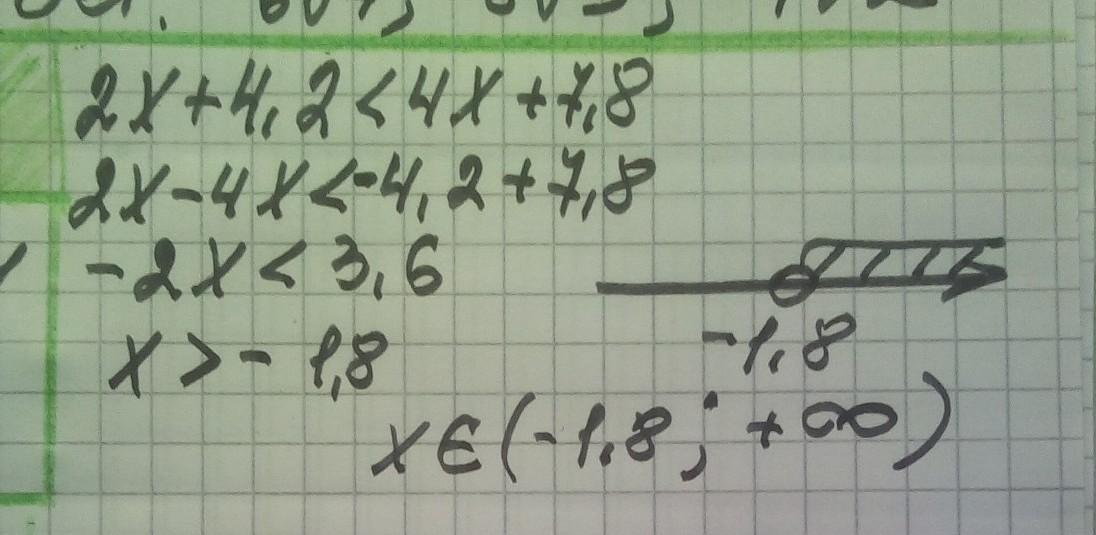 2x+4,2<4x+7,8
2x-4x<-4,2+7,8
-2x<3,6
x>-1,8
-1,8
x∈(-1,8;+∞)